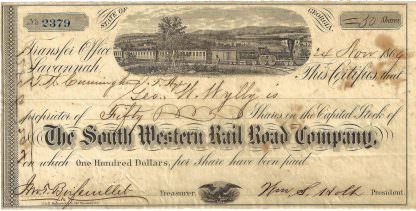 No 2379
STATE OF
GEORGIA.
= 50 Shares
Transfer Office
24 Nov 186
Savannah,
This Certifies that
Geo. W. Wylly is
proprietor of Fifty Shares in the Capital Stock of
The South Western Rail Road Company,
on which One Hundred Dollars, per Share have been paid.
Treasurer.
Wm. S. Holt President.